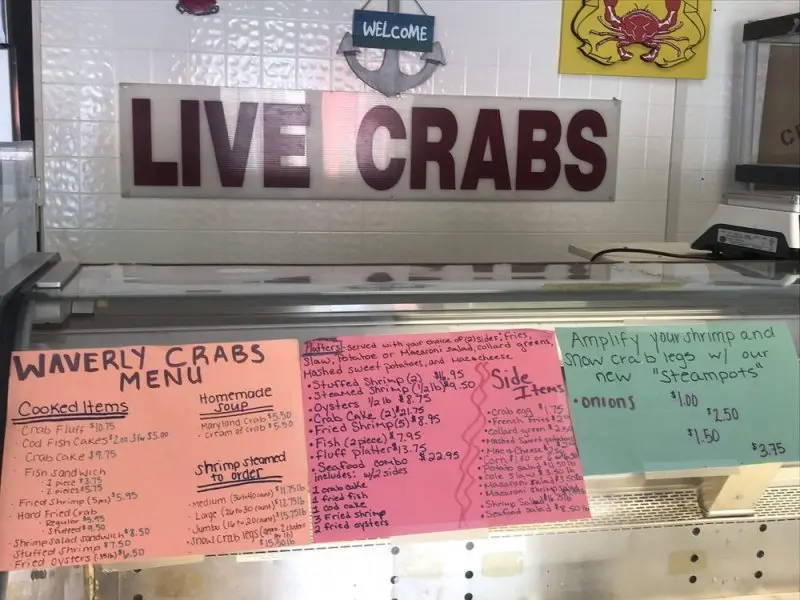 WELCOME
LIVE CRABS
WAVERLY CRABS
MENU
Cooked Items
Crab Fluff $10.75
Cod Fish Cakes $2.00 3 for $5.00
Crab Cake $9.75
Fish Sandwich
1 piece $3.75
2 pieces $5.75
Fried Shrimp (5pcs) $5.95
Hard Fried Crab
Regular $5.95
Stuffed $9.50
Shrimp Salad Sandwich $8.50
Stuffed Shrimp $7.50
Fried Oysters $6.50
Homemade
Soup
Maryland Crab $5.50
Cream of Crab $5.50
Shrimp steamed
to order
Medium (36-40 count) $11.75 lb
Large (26-30 count) $12.75 lb
Jumbo (16-20 count) $15.75 lb
Snow Crab legs
$15.50 lb
Platters served with your choice of (2) sides: fries,
Slaw, Potatoe or Macaroni salad, collard greens,
Mashed sweet potatoes, and Mac & cheese
Stuffed Shrimp (2) $16.95
Steamed Shrimp (1/2 lb) $9.50
Oysters 1/2 lb $8.75
Crab Cake (2) $21.75
Fried Shrimp (5) $8.95
Fish (2 piece) $7.95
fluff platter $13.75
Seafood combo $22.95
includes: w/2 sides
1 crab cake
1 fried fish
1 cod cake
3 Fried shrimp
2 fried oysters
Side
Items
Crab egg $1.75
French Fries
Collard green $2.50
Mashed Sweet potatoes
Mac n Cheese
Corn
Potato Salad
Cole Slaw
Macaroni Salad
Macaroni Tuna
Shrimp Salad
Seafood Salad $8.50 lb
Amplify your shrimp and
snow crab legs w/ our
new "Steampots"
onions $1.00
$2.50
$1.50
$3.75